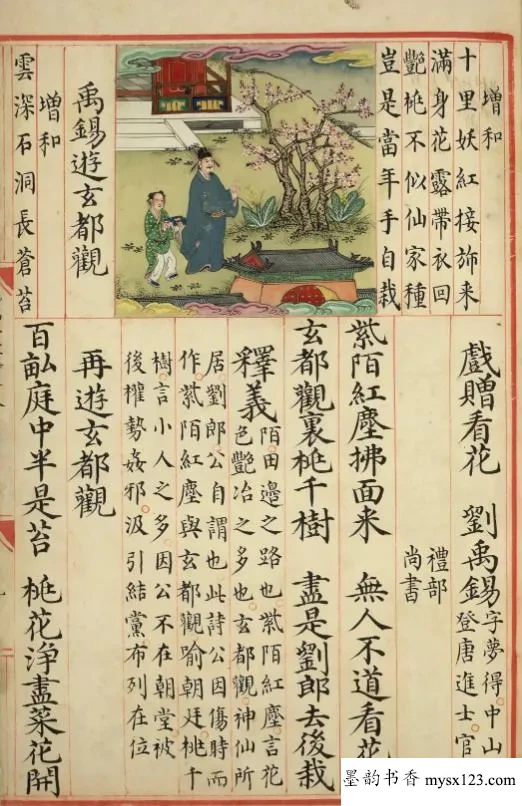 增和
十里妖紅接斾来
滿身花露帶衣回
艷桃不似仙家種
豈是當年手自栽
禹錫遊玄都觀
增和
雲深石洞長蒼苔
戲贈看花 劉禹錫 字夢得中山
登唐進士官
禮部
尚書
紫陌紅塵拂面来 無人不道看花
玄都觀裏桃千樹 盡是劉郎去後栽
釋義 陌田邊之路也紫陌紅塵言花
色艷冶之多也玄都觀神仙所
居劉郎公自謂也此詩公因傷時而
作紫陌紅塵與玄都觀喻朝廷桃千
樹言小人之多因公不在朝堂被
後權勢姦邪汲引結黨布列在位
再遊玄都觀
百畆庭中半是苔 桃花浄盡菜花開
墨韵书香 mysx123.com